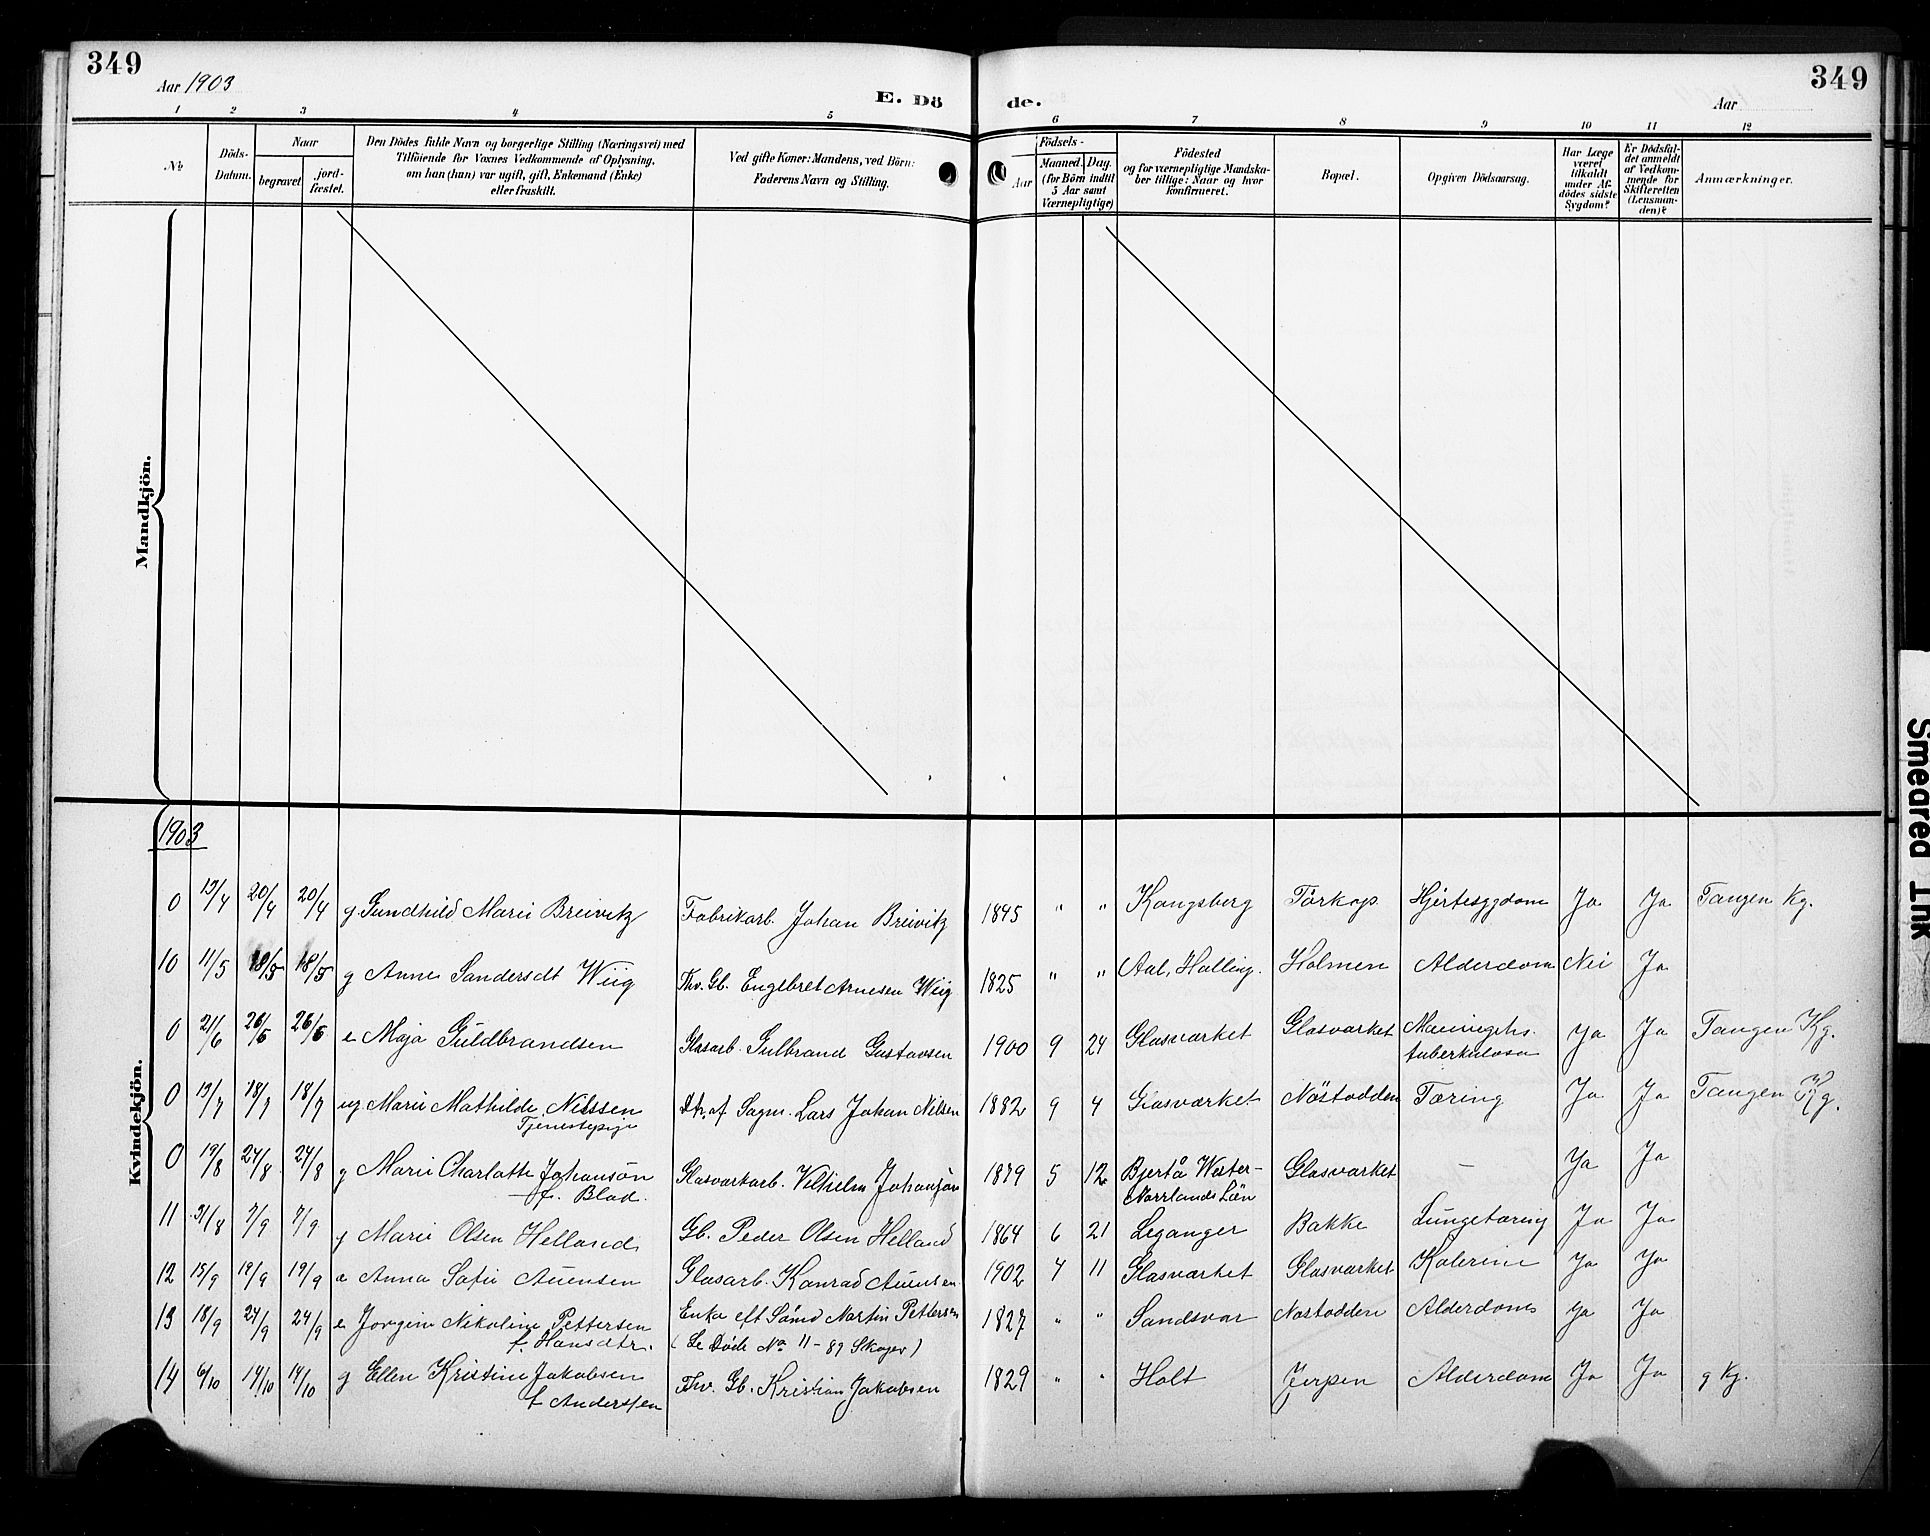 349
349
Aar 1903
E. Dö
de.
Aar
1 2 3 4 5 6 7 8 9 10 11 12
№
Döds-
Datum.
Naar
begravet
jord-
fæstet.
Den Dödes fulde Navn og borgerlige Stilling (Næringsvei) med
Tilföiende for Voxnes Vedkommende af Oplysning,
om han (hun) var ugift, gift, Enkemand (Enke)
eller fraskilt.
Ved gifte Koner: Mandens, ved Börn:
Faderens Navn og Stilling.
Födsels-
Aar
Maaned. Dag.
(for Börn indtil
5 Aar samt
Værnepligtige)
Födested
og for værnepligtige Mandska-
ber tillige: Naar og hvor
konfirmeret.
Bopæl.
Opgiven Dödsaarsag.
Har Læge
været
tilkaldt
under Af-
dödes sidste
Sygdom?
Er Dödsfal-
det anmeldt
af Vedkom-
mende for
Skifteretten
(Lensman-
den)?
Anmærkninger.
Mandkjön.
Kvindekjön.
1903
0 13/4 20/4 20/4 g Gundhild Marie Breivitz Fabrikarb. Johan Breivitz 1845 " " Kongsberg Törkop Hjertesygdom Ja Ja Tangen Kg.
10 11/5 18/5 18/5 g Anne Sandersdt Wiig Fhv. Gb. Engebret Arnesen Wiig 1825 " " Aal, Halling. Holmen Alderdom Nei Ja
0 21/6 26/6 26/6 e Maja Guldbrandsen Glasarb. Gulbrand Gustavsen 1900 9 24 Glasværket Glasværket
tuberkulosa Ja Ja Tangen Kg.
0 13/7 18/7 18/7 ug Marie Mathilde Nilssen Dtr. af Sagm. Lars Johan Nilsen 1882 9 4 Glasværket Nöstodden Tæring Ja Ja Tangen Kg.
Tjenestepige
0 19/8 24/8 24/8 g Marie Charlotte Johansön Glasværkarb. Vilhelm Johansön 1879 5 12 Bjertå Wester- Glasværket — Ja Ja
f. Blad. Norrlands Län
11 31/8 7/9 7/9 g Marie Olsen Helland Gb. Peder Olsen Helland 1864 6 21 Leganger Bakke Lungetæring Ja Ja
12 15/9 19/9 19/9 e Anna Sofie Auensen Glasarb. Konrad Auensen 1902 4 11 Glasværket Glasværket Kolerine Ja Ja
13 18/9 24/9 24/9 e Jorgine Nikoline Pettersen Enke eft Sömd Martin Pettersen 1827 " " Sandsvær Nöstodden Alderdom Ja Ja
f. Hansdtr. (Se Döde No 11 - 89 Skoger)
14 6/10 14/10 14/10 g Ellen Kristine Jakobsen Fhv. Gb. Kristian Jakobsen 1829 " " Holt Jerpen Alderdom Ja Ja g Kg.
f Anderssen
Smeared Ink